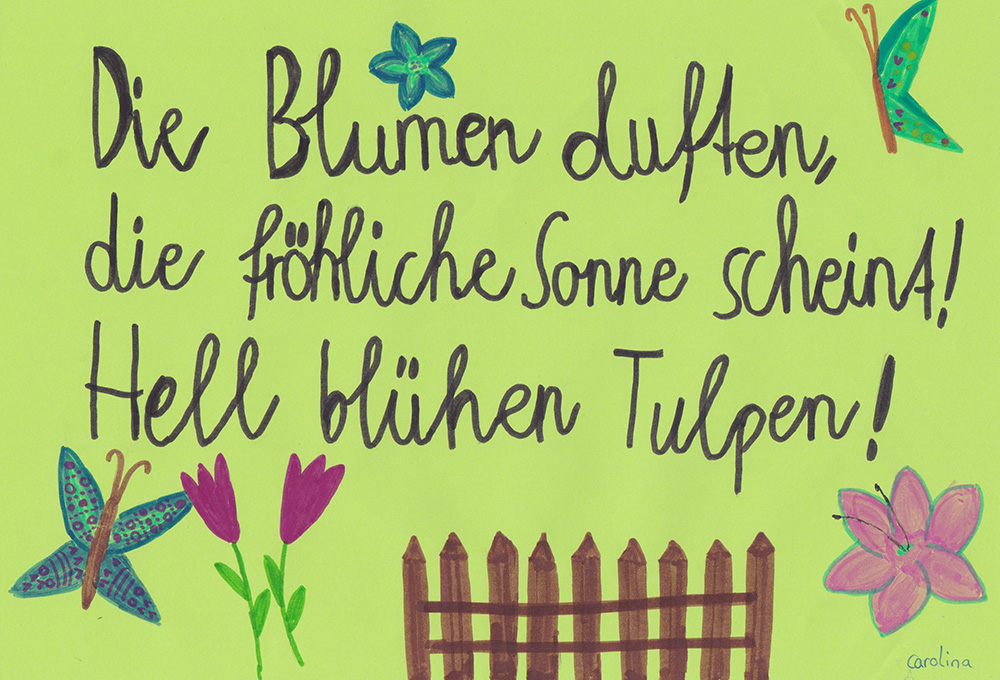 Die Blumen duften,
die fröhliche Sonne scheint!
Hell blühen Tulpen!
carolina